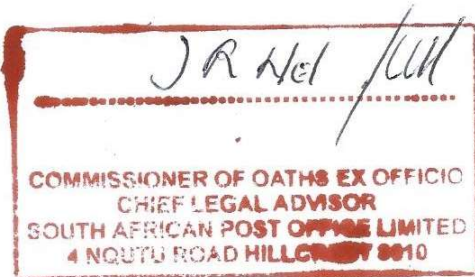 J R Nel
COMMISSIONER OF OATHS EX OFFICIO
CHIEF LEGAL ADVISOR
SOUTH AFRICAN POST OFFICE LIMITED
4 NQUTU ROAD HILLCREST